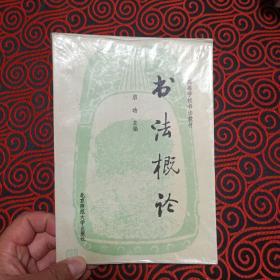 高等学校书法教材
书法概论
启功 主编
北京师范大学出版社